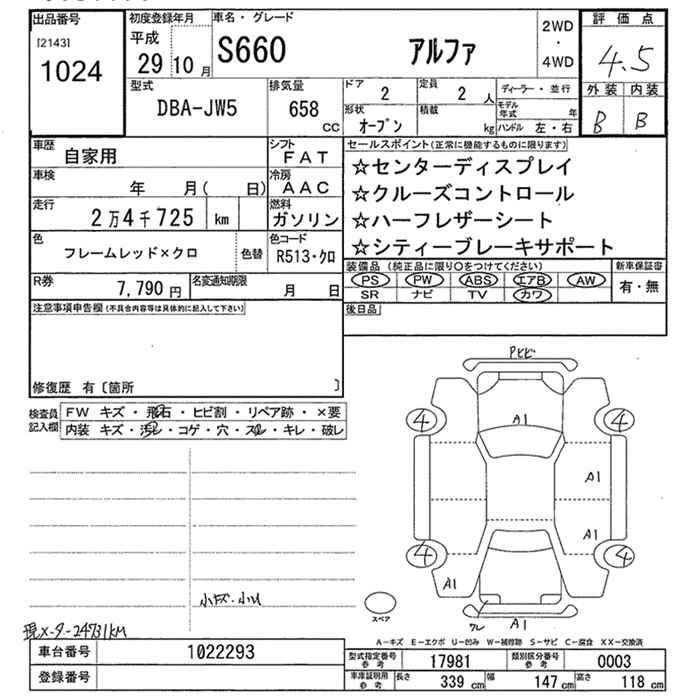 出品番号
[2143]
1024
初度登録年月
平成
29 10 月
車名・グレード
S660 アルファ
2WD
・
4WD
評価点
4.5
外装 内装
B B
型式
DBA-JW5
排気量
658
cc
ドア
2
定員
2 人
形状
オープン
積載
kg
ディーラー・並行
モデル年式 年
ハンドル 左・右
車歴
自家用
シフト
FAT
車検
年 月( 日)
冷房
AAC
走行
2万4千725 km
燃料
ガソリン
色
フレームレッド×クロ
色替
色コード
R513・クロ
R券
7,790 円
名変通知期限
月 日
セールスポイント(正常に機能するものに限ります)
☆センターディスプレイ
☆クルーズコントロール
☆ハーフレザーシート
☆シティーブレーキサポート
装備品 (純正品に限り○をつけてください)
PS PW ABS エアB AW
SR ナビ TV カワ
新車保証書
有・無
後日品
注意事項申告欄(不具合内容等は具体的に記入して下さい)
修復歴 有〔箇所 〕
検査員記入欄
FW キズ・飛石・ヒビ割・リペア跡・×要
内装 キズ・汚レ・コゲ・穴・スレ・キレ・破レ
Pヒビ
A1
4 4
A1
A1
4 4
A1
ワレ A1
スペア
小キズ・小凹
現メーター24731KM
A-キズ E-エクボ U-凹み W-補修跡 S-サビ C-腐食 XX-交換済
車台番号 1022293
登録番号
型式指定番号参考 17981
類別区分番号参考 0003
車庫証明用参考 長さ 339 cm 幅 147 cm 高さ 118 cm